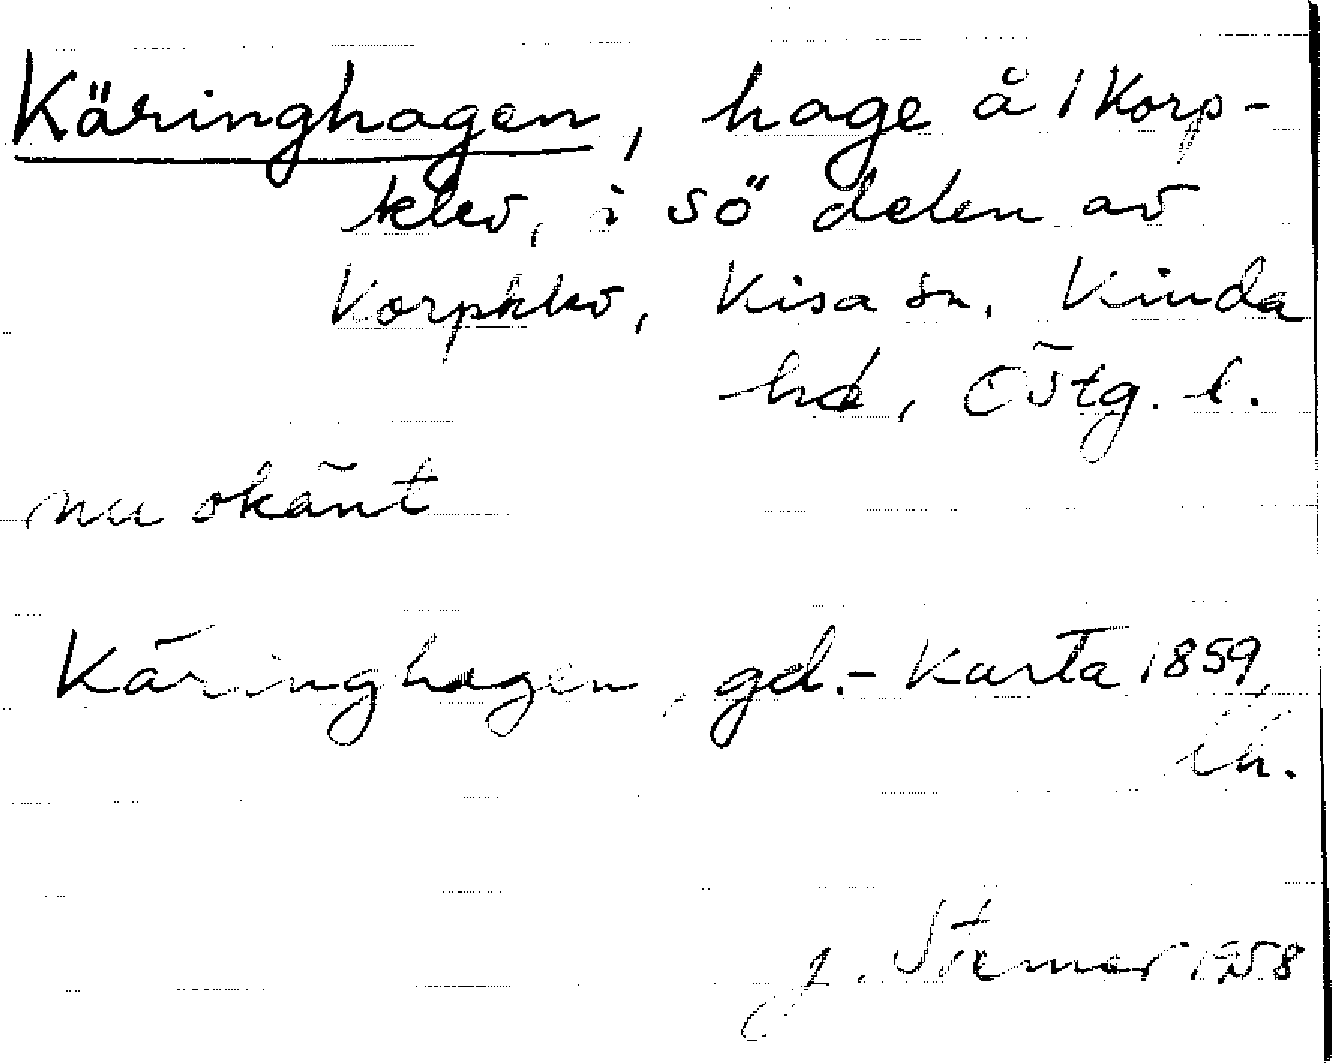 Käringhagen, hage å 1 Korp-
klev, i sö delen av
Korpklev, Kisa sn, Kinda
hd, Östg. l.
nu okänt
Käringhagen, gd.- Karta 1859,
J. Stemer 1958